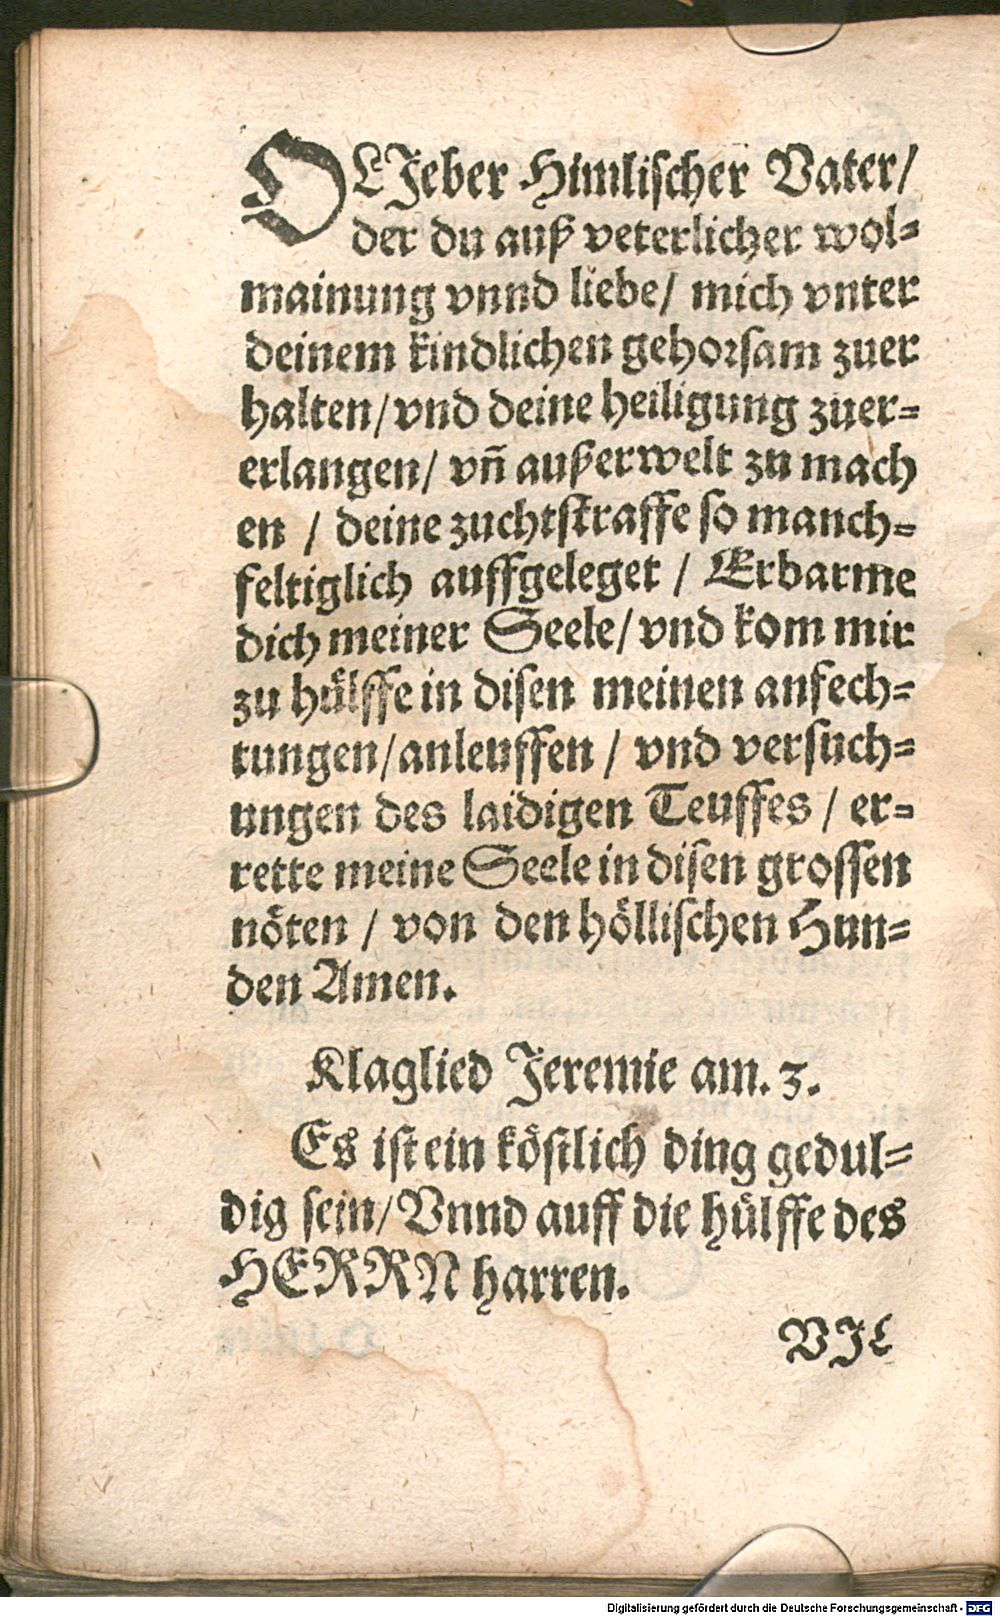 O LJeber Himlischer Vater/
der du auß veterlicher wol-
mainung vnnd liebe/ mich vnter
deinem kindlichen gehorsam zuer
halten/ vnd deine heiligung zuer-
erlangen/ vn̄ außerwelt zu mach
en / deine zuchtstraffe so manch-
feltiglich auffgeleget / Erbarme
dich meiner Seele/ vnd kom mir
zu hülffe in disen meinen anfech-
tungen/ anleuffen / vnd versuch-
ungen des laidigen Teuffes / er-
rette meine Seele in disen grossen
nöten / von den höllischen Hun-
den Amen.
Klaglied Jeremie am. 3.
Es ist ein köstlich ding gedul-
dig sein/ Vnnd auff die hülffe des
HERRN harren.
VJL
Digitalisierung gefördert durch die Deutsche Forschungsgemeinschaft - DFG